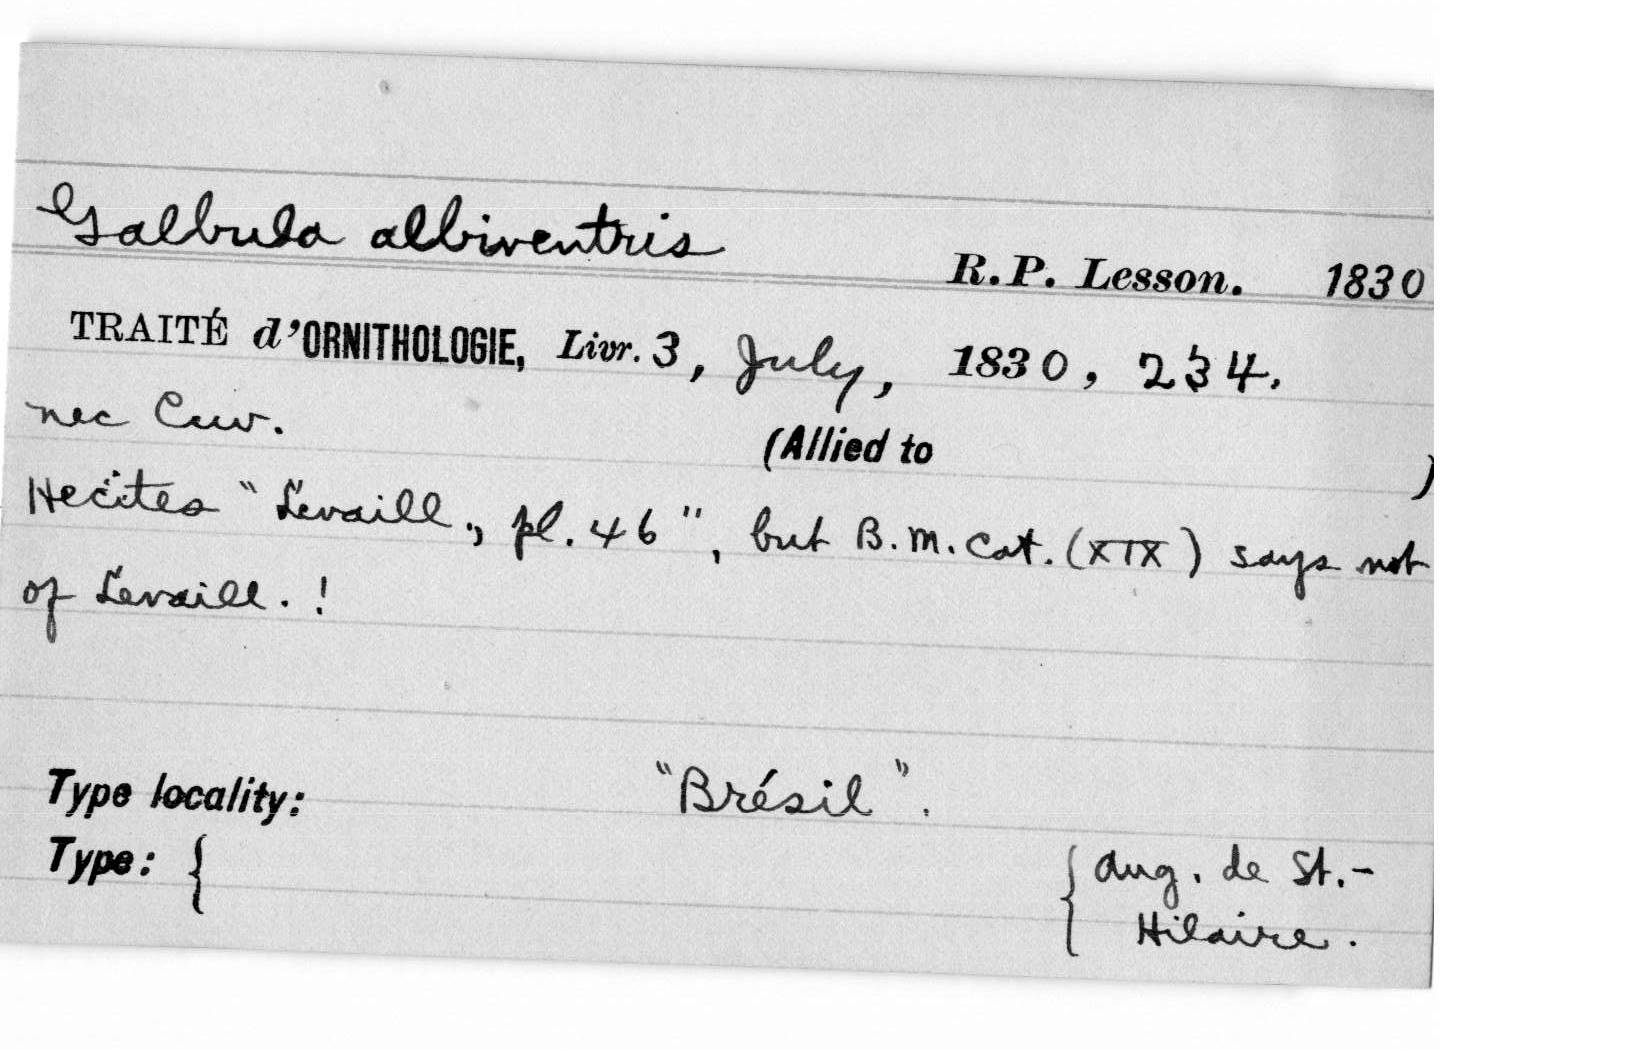 Galbula albiventris
R.P. Lesson. 1830
TRAITÉ d'ORNITHOLOGIE, Livr. 3, July, 1830, 234.
nec Cuv.
(Allied to )
He cites "Levaill., pl. 46", but B.M. Cat. (XIX) says not
of Levaill. !
Type locality: "Brésil".
Type: { { Aug. de St.-
Hilaire.